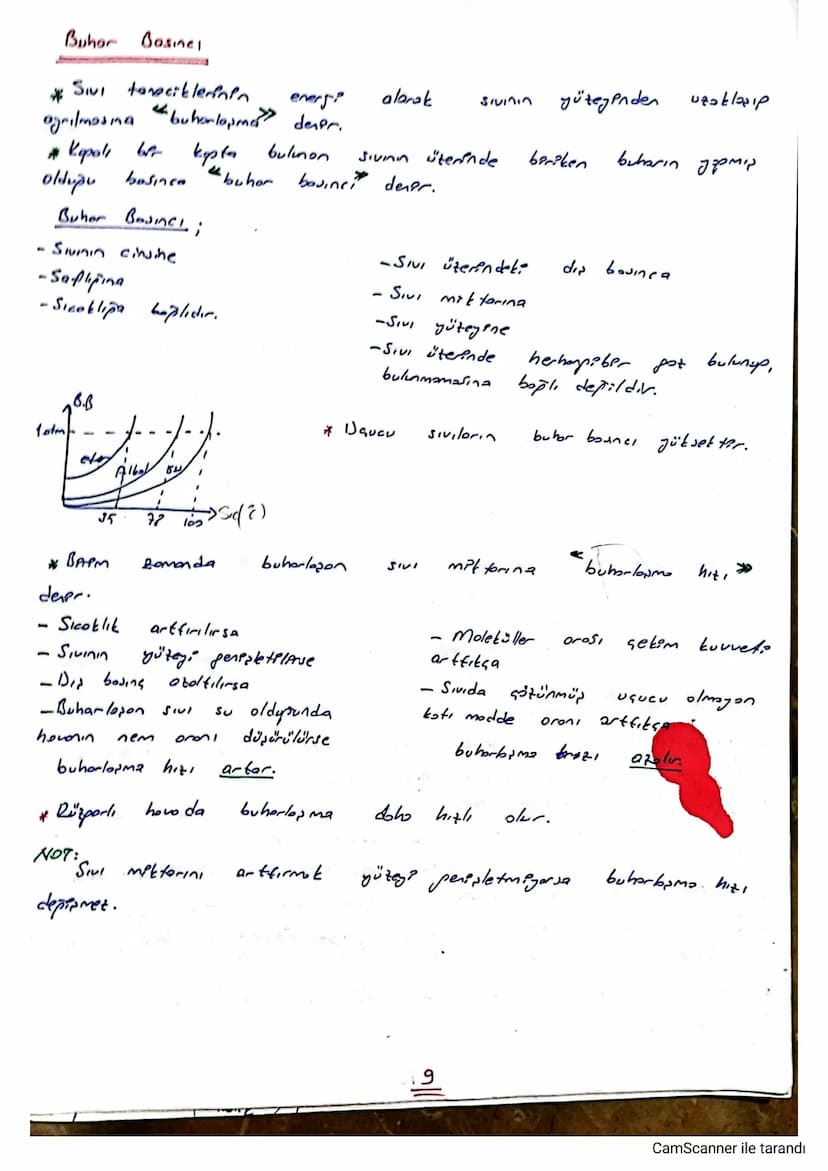 Buhar Basıncı
* Sıvı taneciklerinin enerji alarak sıvının yüzeyinden uzaklaşıp
ayrılmasına "buharlaşma" denir.
* Kapalı bir kapta bulunan sıvının üzerinde biriken buharın yapmış
olduğu basınca "buhar basıncı" denir.
Buhar Basıncı;
- Sıvının cinsine
- Saflığına
- Sıcaklığa bağlıdır.
- Sıvı üzerindeki dış basınca
- Sıvı miktarına
- Sıvı yüzeyine
- Sıvı üzerinde herhangibir gaz bulunup,
bulunmamasına bağlı değildir.
B.B
1 atm
eter
Alkol
su
35
78
100
* Uçucu sıvıların buhar basıncı yüksektir.
* Birim zamanda buharlaşan sıvı miktarına "buharlaşma hızı"
denir.
- Sıcaklık arttırılırsa
- Sıvının yüzeyi genişletilirse
- Dış basınç azaltılırsa
- Buharlaşan sıvı su olduğunda
havanın nem oranı düşürülürse
buharlaşma hızı artar.
- Moleküller arası çekim kuvveti
arttıkça
- Sıvıda çözünmüş uçucu olmayan
katı madde oranı arttıkça
buharlaşma hızı azalır.
* Rüzgarlı havada buharlaşma daha hızlı olur.
NOT:
Sıvı miktarını arttırmak yüzeyi genişletmiyorsa buharlaşma hızı
değişmez.
9
CamScanner ile tarandı